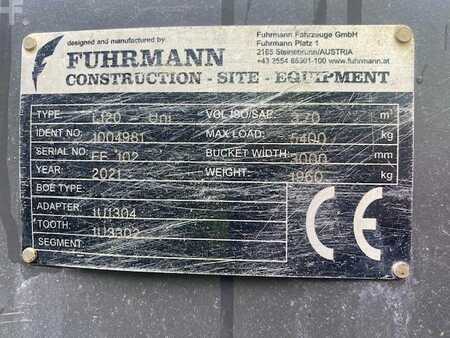 designed and manufactured by:
FUHRMANN
CONSTRUCTION - SITE - EQUIPMENT
Fuhrmann Fahrzeuge GmbH
Fuhrmann Platz 1
2165 Steinebrunn/AUSTRIA
+43 2554 85301-100 www.fuhrmann.at
TYPE: - Uni
IDENT NO.: 1004981
SERIAL NO.: FF 102
YEAR: 2021
BOE TYPE:
ADAPTER: 1U1304
TOOTH: 1U3302
SEGMENT:
VOL ISO/SAE: 3,70 m³
MAX LOAD: 5400 kg
BUCKET WIDTH: 3000 mm
WEIGHT: 1860 kg
CE